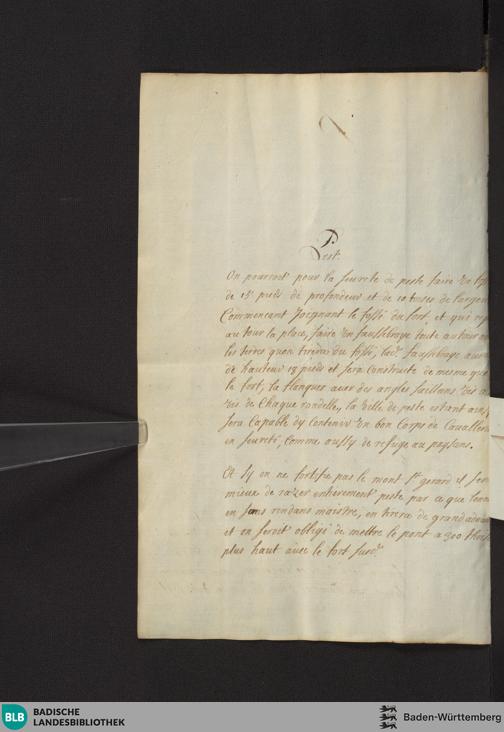 Pest.
On pourroit pour la seureté de peste faire un fossé
de 15 pieds de profondeur et de 10 toises de largeur
Commencant Joignant le fossé du fort, et qui
autour la place, faire un faussebraye toute autour
les terres quon tirera du fossé, lad. faussebraye aura
de hauteur 15 pieds et sera Constructe de mesme que
le fort, la flanquer avec des angles saillans vis a
vis de Chaque rondelle, la ville de peste estant
sera Capable dy Contenir un bon Corps de Cavallerie
en seureté, Comme oussy de refuge au paysans.
Et sy on ne fortifie pas le mont St gerard il seroit
mieux de razer entierement peste par ce que
en sens rendans maistre, en tirera de grand
et on seroit obligé de mettre le pont a 300
plus haut avec le fort surd.
BLB BADISCHE
LANDESBIBLIOTHEK
Baden-Württemberg